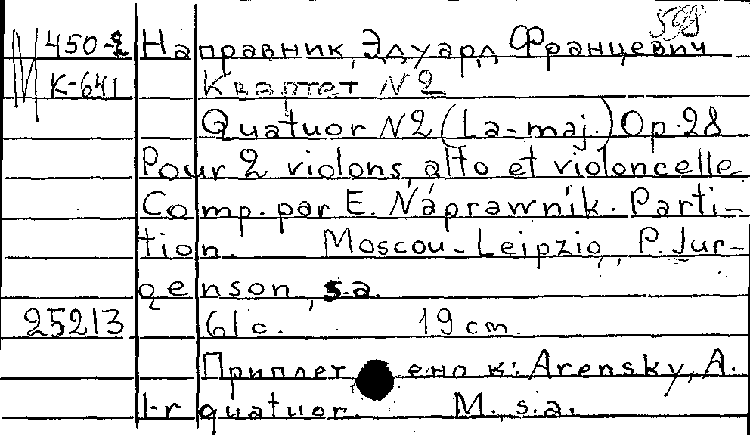 М 450-2 Направник, Эдуард Францевич
К-641 Квартет N2
Quatuor N2 (La-maj.) Op. 28
Pour 2 violons, alto et violoncelle
Comp. par E. Náprawník. Parti-
tion. Moscou-Leipzig, P. Jur-
genson, s.a.
25213 61 c. 19 cm
Приплетено к: Arensky, A.
1-r quatuor. M., s.a.